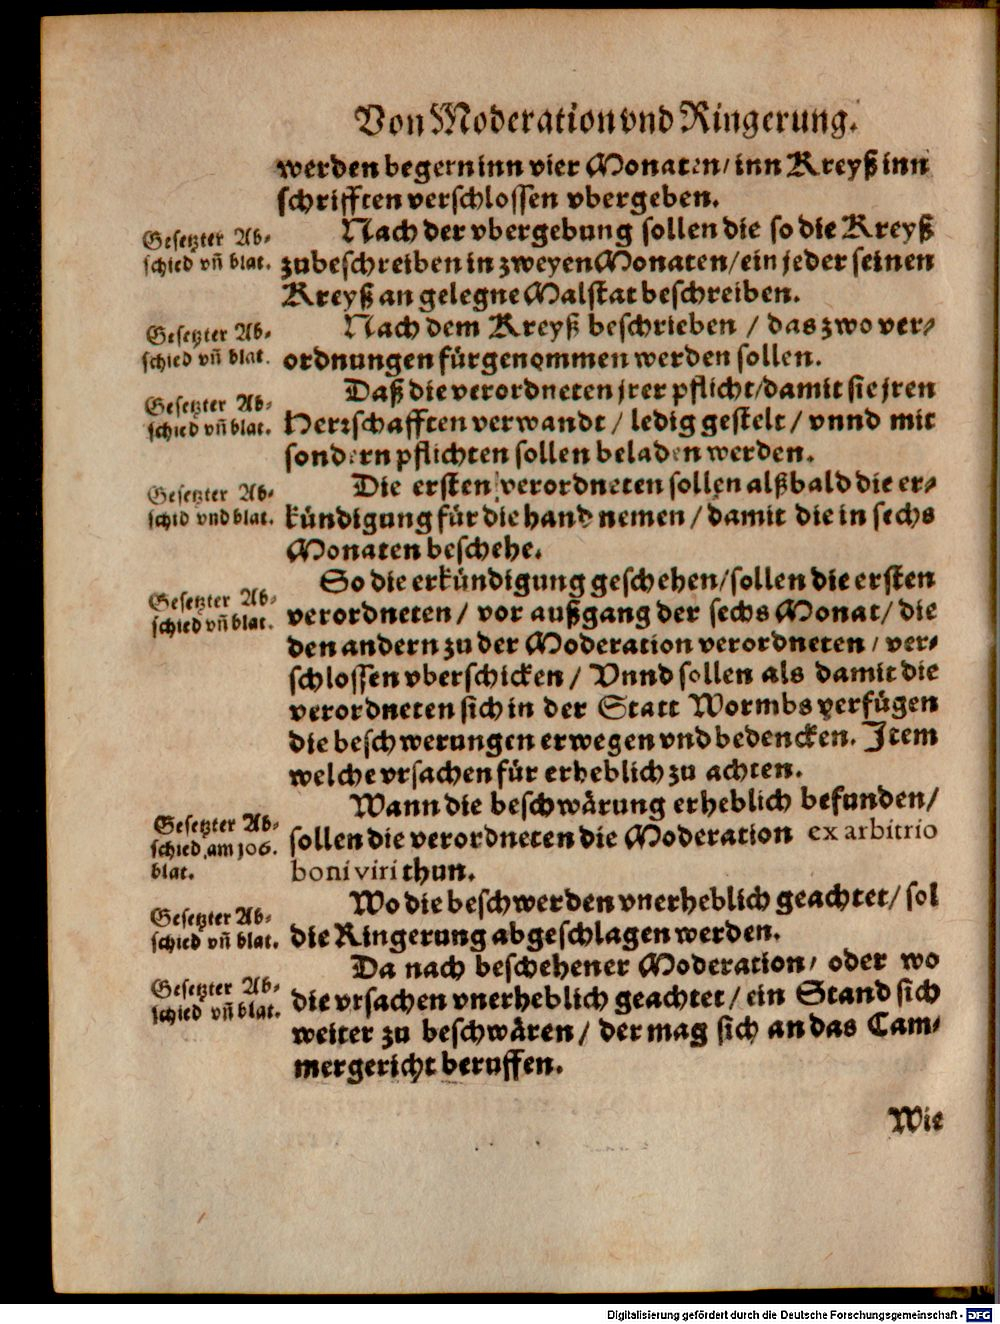 Von Moderation vnd Ringerung.
werden begern inn vier Monaten/ inn Kreyß inn
schrifften verschlossen vbergeben.
Gesetzter Ab-
schied vñ blat.
Nach der vbergebung sollen die so die Kreyß
zubeschreiben in zweyen Monaten/ ein jeder seinen
Kreyß an gelegne Malstat beschreiben.
Gesetzter Ab-
schied vñ blat.
Nach dem Kreyß beschrieben / das zwo ver-
ordnungen fürgenommen werden sollen.
Gesetzter Ab-
schied vñ blat.
Daß die verordneten jrer pflicht/ damit sie jren
Herrschafften verwandt / ledig gestelt / vnnd mit
sondern pflichten sollen beladen werden.
Gesetzter Ab-
schid vnd blat.
Die ersten verordneten sollen alßbald die er-
kündigung für die hand nemen / damit die in sechs
Monaten beschehe.
Gesetzter Ab-
schied vñ blat.
So die erkündigung geschehen/ sollen die ersten
verordneten / vor außgang der sechs Monat/ die
den andern zu der Moderation verordneten / ver-
schlossen vberschicken / Vnnd sollen als damit die
verordneten sich in der Statt Wormbs verfügen
die beschwerungen erwegen vnd bedencken. Item
welche vrsachen für erheblich zu achten.
Gesetzter Ab-
schied am 106.
blat.
Wann die beschwärung erheblich befunden/
sollen die verordneten die Moderation ex arbitrio
boni viri thun.
Gesetzter Ab-
schied vñ blat.
Wo die beschwerden vnerheblich geachtet/ sol
die Ringerung abgeschlagen werden.
Gesetzter Ab-
schied vñ blat.
Da nach beschehener Moderation/ oder wo
die vrsachen vnerheblich geachtet / ein Stand sich
weiter zu beschwären / der mag sich an das Cam-
mergericht beruffen.
Wie
Digitalisierung gefördert durch die Deutsche Forschungsgemeinschaft - DFG